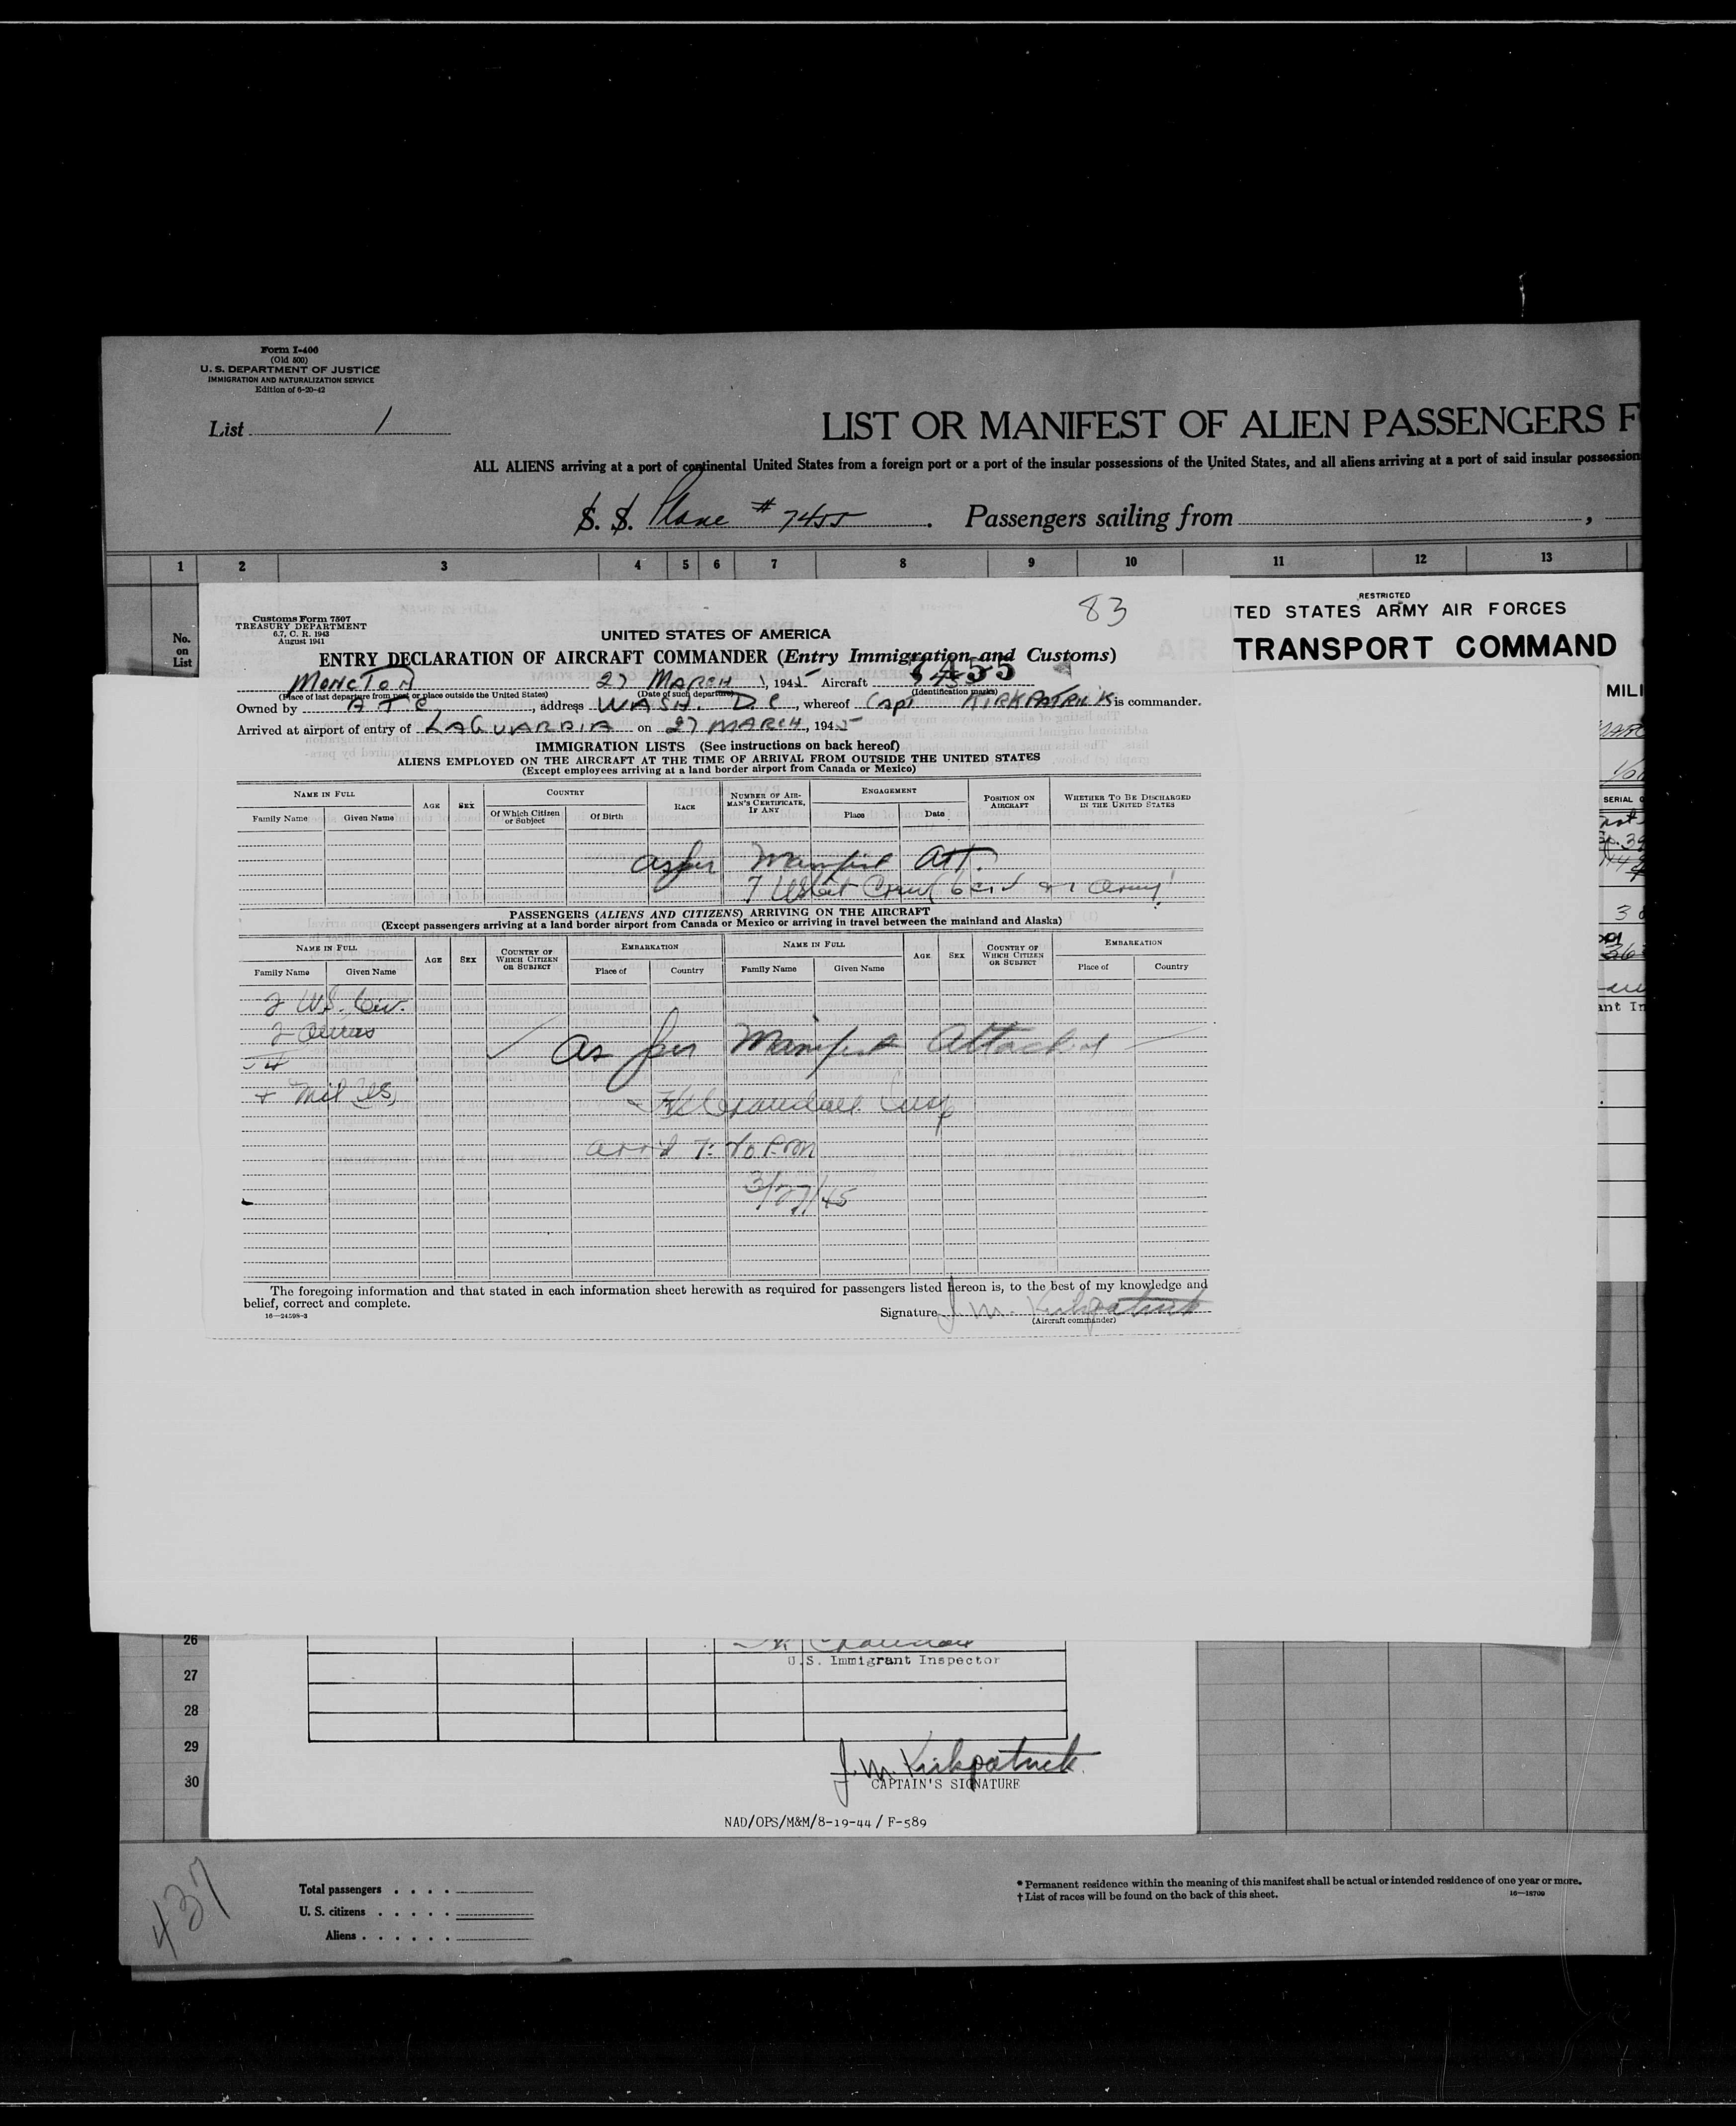 Form I-400
(Old 500)
U. S. DEPARTMENT OF JUSTICE
IMMIGRATION AND NATURALIZATION SERVICE
Edition of 6-20-42
List 1
LIST OR MANIFEST OF ALIEN PASSENGERS F
ALL ALIENS arriving at a port of continental United States from a foreign port or a port of the insular possessions of the United States, and all aliens arriving at a port of said insular possession
S. S. Plane # 7455 . Passengers sailing from ,
1 2 3 4 5 6 7 8 9 10 11 12 13
No. on List
RESTRICTED
TED STATES ARMY AIR FORCES
TRANSPORT COMMAND
MILI
SERIAL
83
Customs Form 7507
TREASURY DEPARTMENT
6.7, C. R. 1943
August 1941
UNITED STATES OF AMERICA
ENTRY DECLARATION OF AIRCRAFT COMMANDER (Entry Immigration and Customs)
MONCTON 27 MARCH, 1945 Aircraft 7455
(Place of last departure from port or place outside the United States) (Date of such departure) (Identification marks)
Owned by ATC, address WASH. D C, whereof Capt KIRKPATRICK is commander.
Arrived at airport of entry of LAGUARDIA on 27 MARCH, 1945
IMMIGRATION LISTS (See instructions on back hereof)
ALIENS EMPLOYED ON THE AIRCRAFT AT THE TIME OF ARRIVAL FROM OUTSIDE THE UNITED STATES
(Except employees arriving at a land border airport from Canada or Mexico)
NAME IN FULL AGE SEX COUNTRY RACE NUMBER OF AIRMAN'S CERTIFICATE, IF ANY ENGAGEMENT POSITION ON AIRCRAFT WHETHER TO BE DISCHARGED IN THE UNITED STATES
Family Name Given Name Of Which Citizen or Subject Of Birth Place Date
as per Manifest Att.
7 US Cit Crew
PASSENGERS (ALIENS AND CITIZENS) ARRIVING ON THE AIRCRAFT
(Except passengers arriving at a land border airport from Canada or Mexico or arriving in travel between the mainland and Alaska)
NAME IN FULL AGE SEX COUNTRY OF WHICH CITIZEN OR SUBJECT EMBARKATION NAME IN FULL AGE SEX COUNTRY OF WHICH CITIZEN OR SUBJECT EMBARKATION
Family Name Given Name Place of Country Family Name Given Name Place of Country
2 U.S. Civ.
2 Aliens
As per Manifest Attached
Mil US
Crandall Insp
arr'd 7:40 P.M
3/27/45
The foregoing information and that stated in each information sheet herewith as required for passengers listed hereon is, to the best of my knowledge and
belief, correct and complete.
Signature J. M. Kirkpatrick
16—24598-3
(Aircraft commander)
26
U.S. Immigrant Inspector
27
28
29
30
J. M. Kirkpatrick
CAPTAIN'S SIGNATURE
NAD/OPS/M&M/8-19-44 / F-589
437
Total passengers . . . .
U. S. citizens . . . . .
Aliens . . . . . .
* Permanent residence within the meaning of this manifest shall be actual or intended residence of one year or more.
† List of races will be found on the back of this sheet.
16—18700